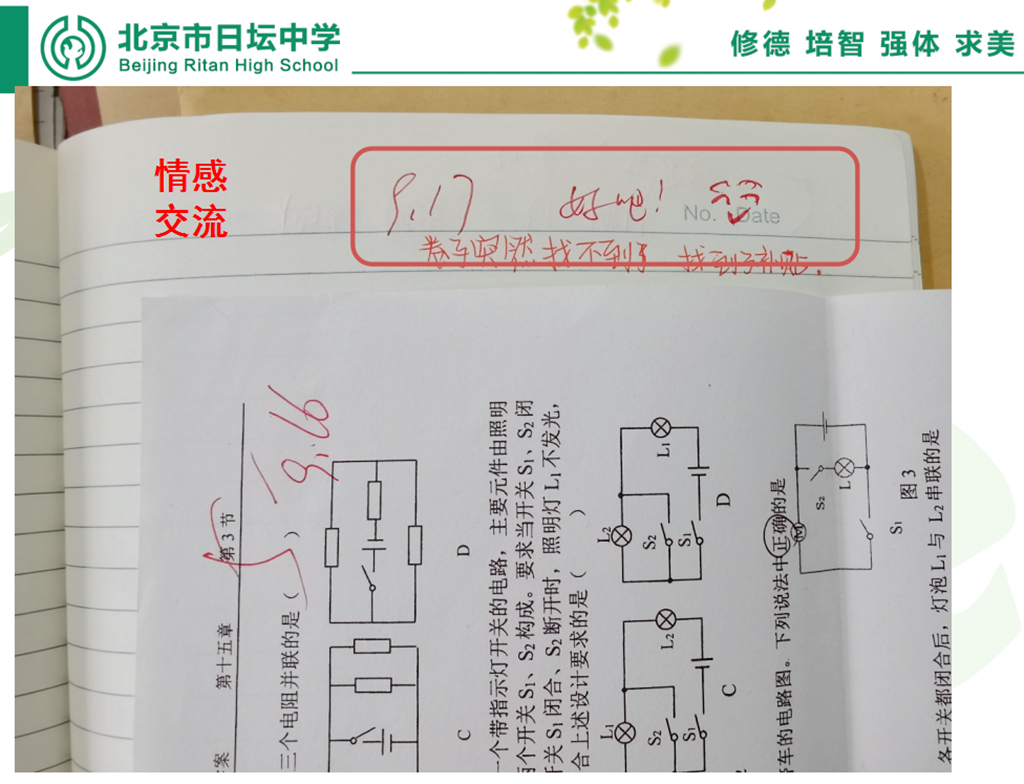 北京市日坛中学
Beijing Ritan High School
修德 培智 强体 求美
情感
交流
9.17 好吧！
No. Date
卷子突然找不到了，找到了补贴.
9.16
第十五章 第3节
三个电阻并联的是（ ）
C
D
一个带指示灯开关的电路，主要元件由照明
两个开关 S₁、S₂ 构成。要求当开关 S₁、S₂ 闭
开关 S₁ 闭合、S₂ 断开时，照明灯 L₁ 不发光，
合上述设计要求的是（ ）
L₂
L₁
S₂
S₁
D
L₁
L₂
S₂
S₁
C
车的电路图。下列说法中正确的是
M
S₂
L
S₁
图 3
各开关都闭合后，灯泡 L₁ 与 L₂ 串联的是